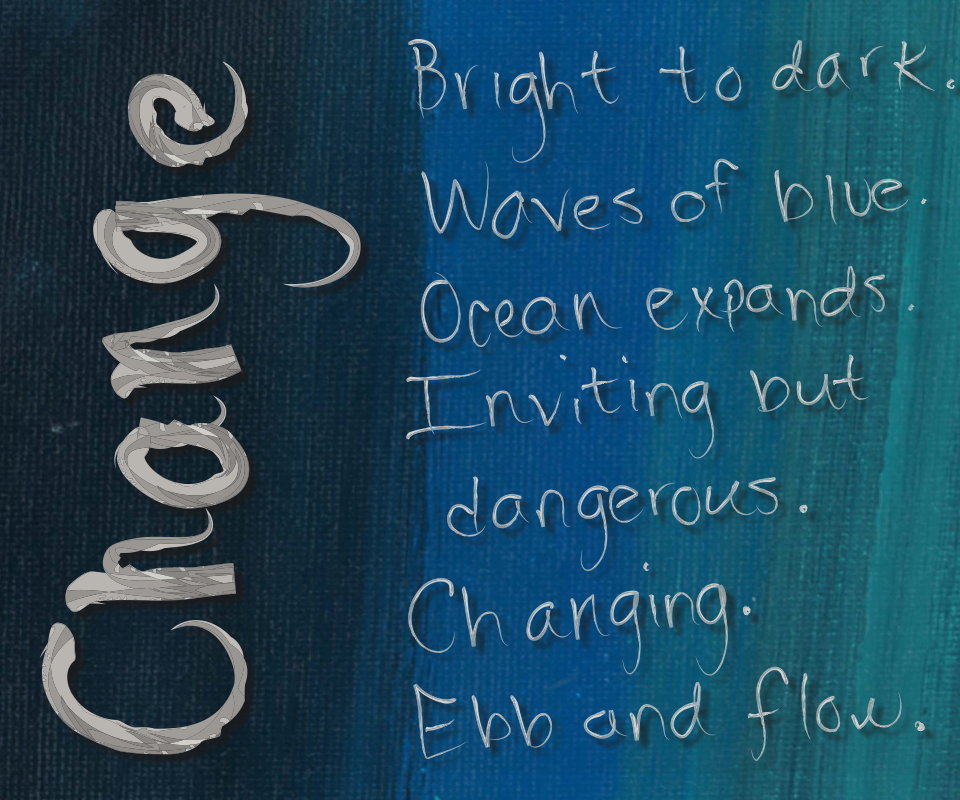 Change
Bright to dark.
Waves of blue.
Ocean expands.
Inviting but
dangerous.
Changing.
Ebb and flow.